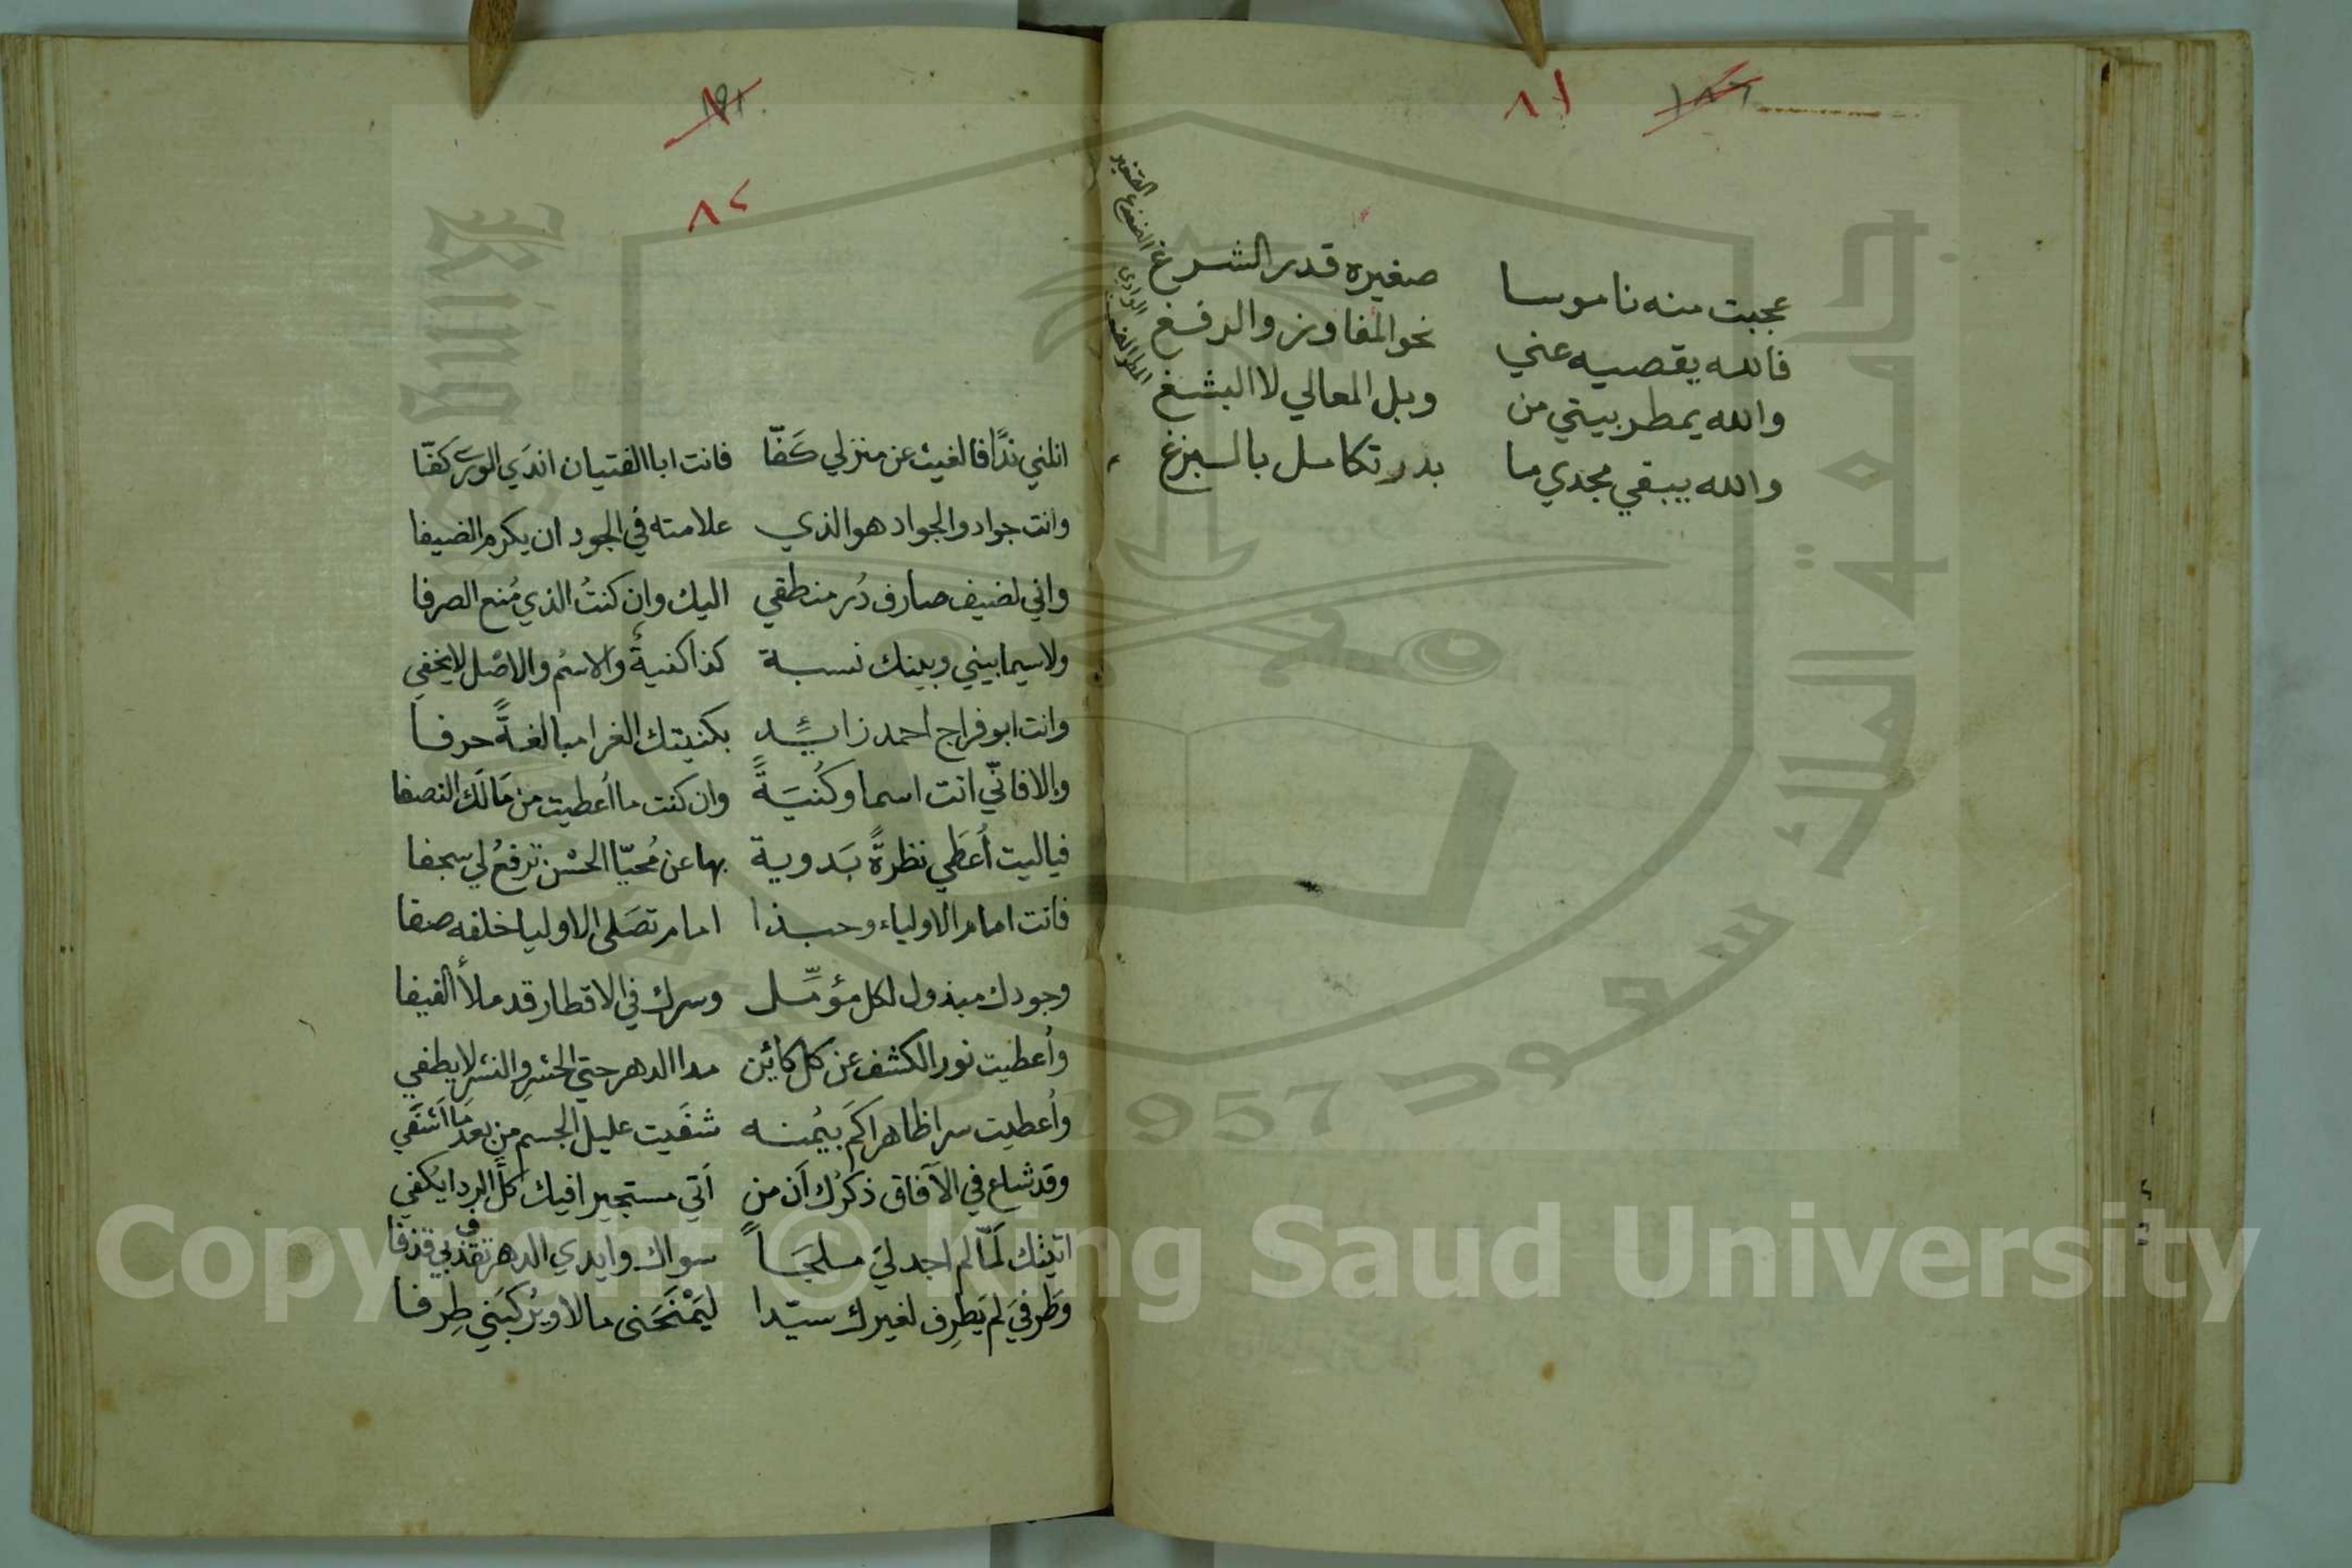 ٨١
عجبت منه ناموسا صغيره قدر الشرغ
فالله يقصيه عني نحو المفاوز والرفغ
والله يمطر بيتي من وبل المعالي لا البشغ
والله يبقي مجدي ما بدر تكامل بالبزغ
الوادي
٨٢
انلني ندًا فالغيث عن منزلي كَفّا فانت ابا الفتيان اندَي الورى كفّا
وانت جواد والجواد هو الذي علامته في الجود ان يكرم الضيفا
واني لضيف صارف دُر منطقي اليك وان كنتُ الذي مُنع الصرفا
ولاسيما بيني وبينك نسبة كذا كنيةٌ والاسمُ والاصْل لا يخفي
وانت ابو فراج احمد زائِد بكنيتك الغرا مبالغةً حرفا
والا فانّي انت اسما وكُنيَةً وان كنت ما اُعطيت من مَالَك النصفا
فياليت اُعطَي نظرةً بَدوية بها عن مُحيّا الحسْن ترفعُ لي سجفا
فانت امام الاولياء وحبذا امام تصَلي الاوليا خلفه صفا
وجودك مبذول لكل مؤمِّل وسرك في الاقطار قد ملأ الفيفا
واُعطيت نور الكشف عن كل كائن مدا الدهر حتي الحشرِ والنشرِ لا يطفي
واُعطيت سرا ظاهرا كَم بيُمنه شفَيت عليل الجسم من بعد مَا اَشفَي
وقد شاع في الآفاق ذكرُك اَن من اَتي مستجيرا فيك كلَّ الردا يُكفي
اتيتك لَمّا لم اجد ليَ ملجَأً سواك وايدي الدهر تقذف بي قذفا
وَطرفيَ لم يَطرِف لغيرك سيّدا ليَمْنحَنى مالا ويُركبَني طِرفا
Copyright © King Saud University
جامعة الملك سعود
1957